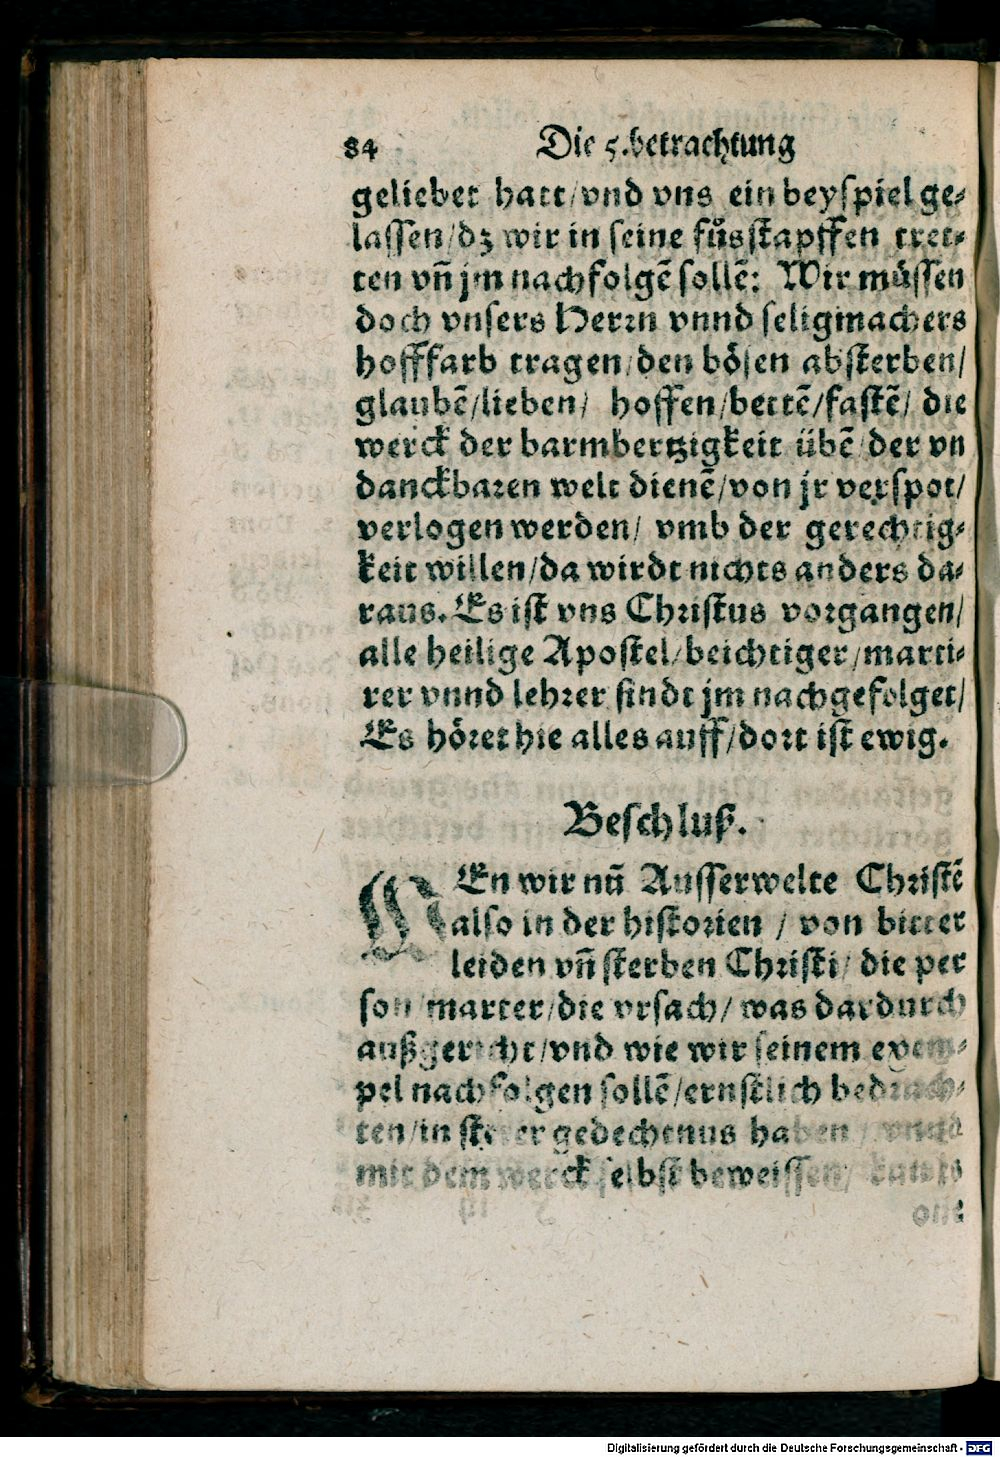 84 Die 5. betrachtung
geliebet hatt/vnd vns ein beyspiel ge-
lassen/dz wir in seine fůsstapffen tret-
ten vñ jm nachfolgẽ sollẽ: Wir müssen
doch vnsers Herrn vnnd seligmachers
hofffarb tragen/den bösen absterben/
glaubẽ/lieben/ hoffen/bettẽ/fastẽ/ die
werck der barmhertzigkeit übẽ/der vn
danckbaren welt dienẽ/von jr verspot/
verlogen werden/ vmb der gerechtig-
keit willen/da wirdt nichts anders da-
raus. Es ist vns Christus vorgangen/
alle heilige Apostel/beichtiger/marti-
rer vnnd lehrer sindt jm nachgefolget/
Es höret hie alles auff/dort ist ewig.
Beschluß.
WEn wir nũ Ausserwelte Christẽ
also in der historien / von bitter
leiden vñ sterben Christi/ die per
son/marter/die vrsach/ was dardurch
außgericht/vnd wie wir seinem exem-
pel nachfolgen sollẽ/ernstlich bedrach-
ten/in steter gedechtnus haben / vnnd
mit dem werck selbst beweissen/
Digitalisierung gefördert durch die Deutsche Forschungsgemeinschaft - DFG